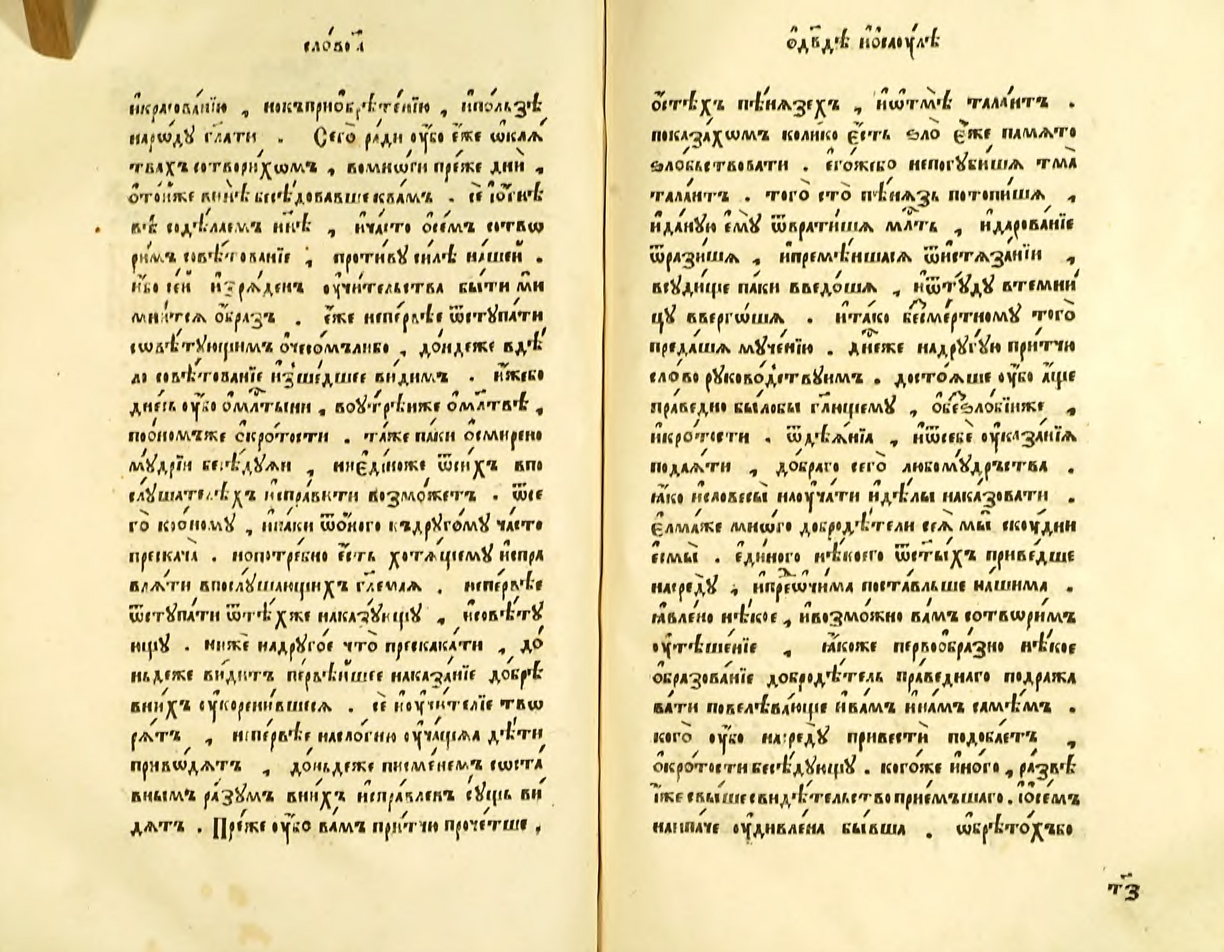 сло́во а҃
и҆красова́нїю , нокъприѡбрѣте́нїю , и҆по́льзѣ
наро́ду гл҃ати . Сего̀ ра́ди ᲂу҆́бо е҆́же ѡ҆кл́ѧ
твахъ сотвори́хѡмъ , вомно́ги пре́же днѝ ,
ѿто́ѧже вины̀ бесѣ́довавше ква́мъ . сѐ і҆ѻ҆сн҃ѣ
вѣ содѣ́лаемъ нн҃ѣ , и҆ча́сто ѻ҆се́мъ сотвѡ
ри́мъ совѣ́тованїе , проти́ву си́лѣ на́шей .
и҆́бо се́й и҆зрѧ́денъ ᲂу҆чи́тельства бы́ти мѝ
мни́тсѧ ѻ҆́бразъ . е҆́же непе́рвѣе ѿступа́ти
совѣ́тующимъ ѻ҆чесо́мълибо , до́ндеже вдѣ́
ло совѣ́тованїе и҆зше́дшее ви́димъ . и҆́жебо
дне́сь ᲂу҆́бо ѻ҆мл҃тыни , воу́трѣиже ѻ҆мл҃твѣ ,
поѻ҆но́мъже ѻ҆кро́тости . та́же па́ки ѻ҆смирено
му́дрїи бесѣ́дуѧи , ниеди́ноже ѿси́хъ впо
слу́шателѣхъ и҆спра́вити возмо́жетъ . ѿсе
го̀ ко́ному , и҆па́ки ѿо́ного къдруго́му ча́сто
прескача̀ . нопотре́бно е҆́сть хотѧ́щему и҆спра
влѧ́ти впослу́шающихъ гл҃емаѧ . непе́рвѣе
ѿступа́ти ѿтѣ́хже наказу́ющу , и҆совѣ́ту
ющу . ни́же надруго́е что̀ прескака́ти , до́
ньдеже ви́дитъ пе́рвѣйшее наказа́нїе до́брѣ
вни́хъ ᲂу҆корени́вшеесѧ . сѐ и҆ᲂу҆чи́телїе твѡ
рѧ́тъ , непе́рвѣе насло́гию ᲂу҆ча́щаѧ дѣ́ти
приво́дѧтъ , до́ньдеже писмене́мъ соста́
внымъ ра́зумъ вни́хъ и҆спра́вленъ су́щь ви́
дѧтъ . Пре́же ᲂу҆́бо ва́мъ при́тчю проче́тше ,
ѻ҆дв҃дѣ и҆ѻ҆саѹ́лѣ
ѻ҆стѣ́хъ пѣ́нѧзехъ , и҆ѿтмѣ̀ тала́нтъ .
показа́хѡмъ коли́ко е҆́сть ѕло̀ е҆́же памѧто
ѕло́бьствовати . е҆го́жебо непогуби́шѧ тма̀
тала́нтъ . того̀ сто̀ пѣ́нѧзь потопи́шѧ ,
и҆да́ную е҆му̀ ѿврати́шѧ мл҃ть , и҆дарова́нїе
ѿрази́шѧ , и҆премѣ́ншаѧсѧ ѿи҆стѧза́нїи ,
всуди́ще па́ки введо́шѧ , и҆ѿту́ду втемни́
цу вверго́шѧ . и҆та́ко бесме́ртному того̀
преда́шѧ муче́нїю . дн҃еже надругу́ю при́тчю
сло́во руково́дствуимъ . досто́ѧше ᲂу҆́бо а҆́ще
пра́ведно бы́лобы гл҃ющему , ѻ҆безло́бїиже ,
и҆кро́тости . ѿдѣѧ́нїа , и҆ѿсебѐ ᲂу҆каза́нїѧ
подаѧ́ти , до́браго сего̀ любому́дрьства .
ꙗ҆́ко и҆словесы̀ наᲂу҆ча́ти и҆дѣ́лы наказовати .
Е҆лма́же мно́го добродѣ́тели сеѧ̀ мы̀ ску́дни
е҆смы̀ . е҆ди́ного нѣ́коего ѿст҃ы́хъ приве́дше
насредꙋ̀ , и҆преѡчи́ма поста́вльше на́шима .
ꙗ҆вле́но нѣ́кое , и҆возмо́жно ва́мъ сотвори́мъ
ᲂу҆тѣше́нїе , ꙗ҆́коже первообра́зно нѣ́кое
ѻ҆бразова́нїе добродѣ́тель пра́веднаго подража
ва́ти повелѣва́юще и҆ва́мъ и҆на́мъ самѣ́мъ .
кого̀ ᲂу҆́бо насредꙋ̀ привестѝ подоба́етъ ,
ѻ҆кро́тости бесѣ́дующу . кого́же и҆но́го , ра́звѣ
и҆́же свы́ше свидѣ́тельство прие́мъшаго . і҆ѻ҆се́мъ
наипа́че ᲂу҆дивле́на бы́вша . ѡ҆брѣто́хъбо
т҃з